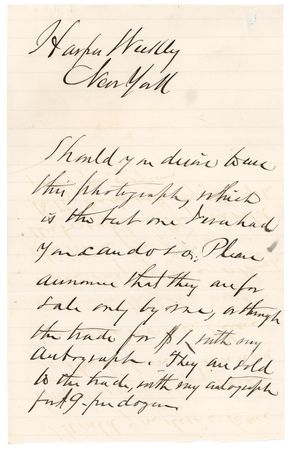 Harper Weekly
New York
Should you desire to use
this photograph, which
is the best one I ever had
you can do so. Please
announce that they are for
sale only by me, or through
the trade for $1, with my
autograph. They are sold
to the trade, with my autograph
for $9 - per dozen